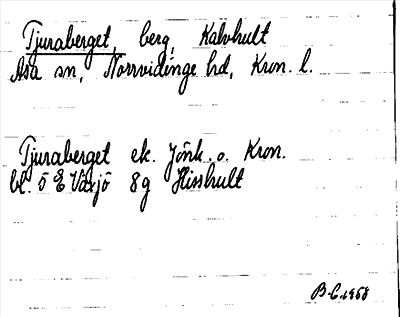 Tjuraberget, berg, Kalvhult
Asa sn, Norrvidinge hd, Kron. l.
Tjuraberget ek. Jönk. o. Kron.
bl. 5 E Växjö 8g Hisshult
B.C. 1958